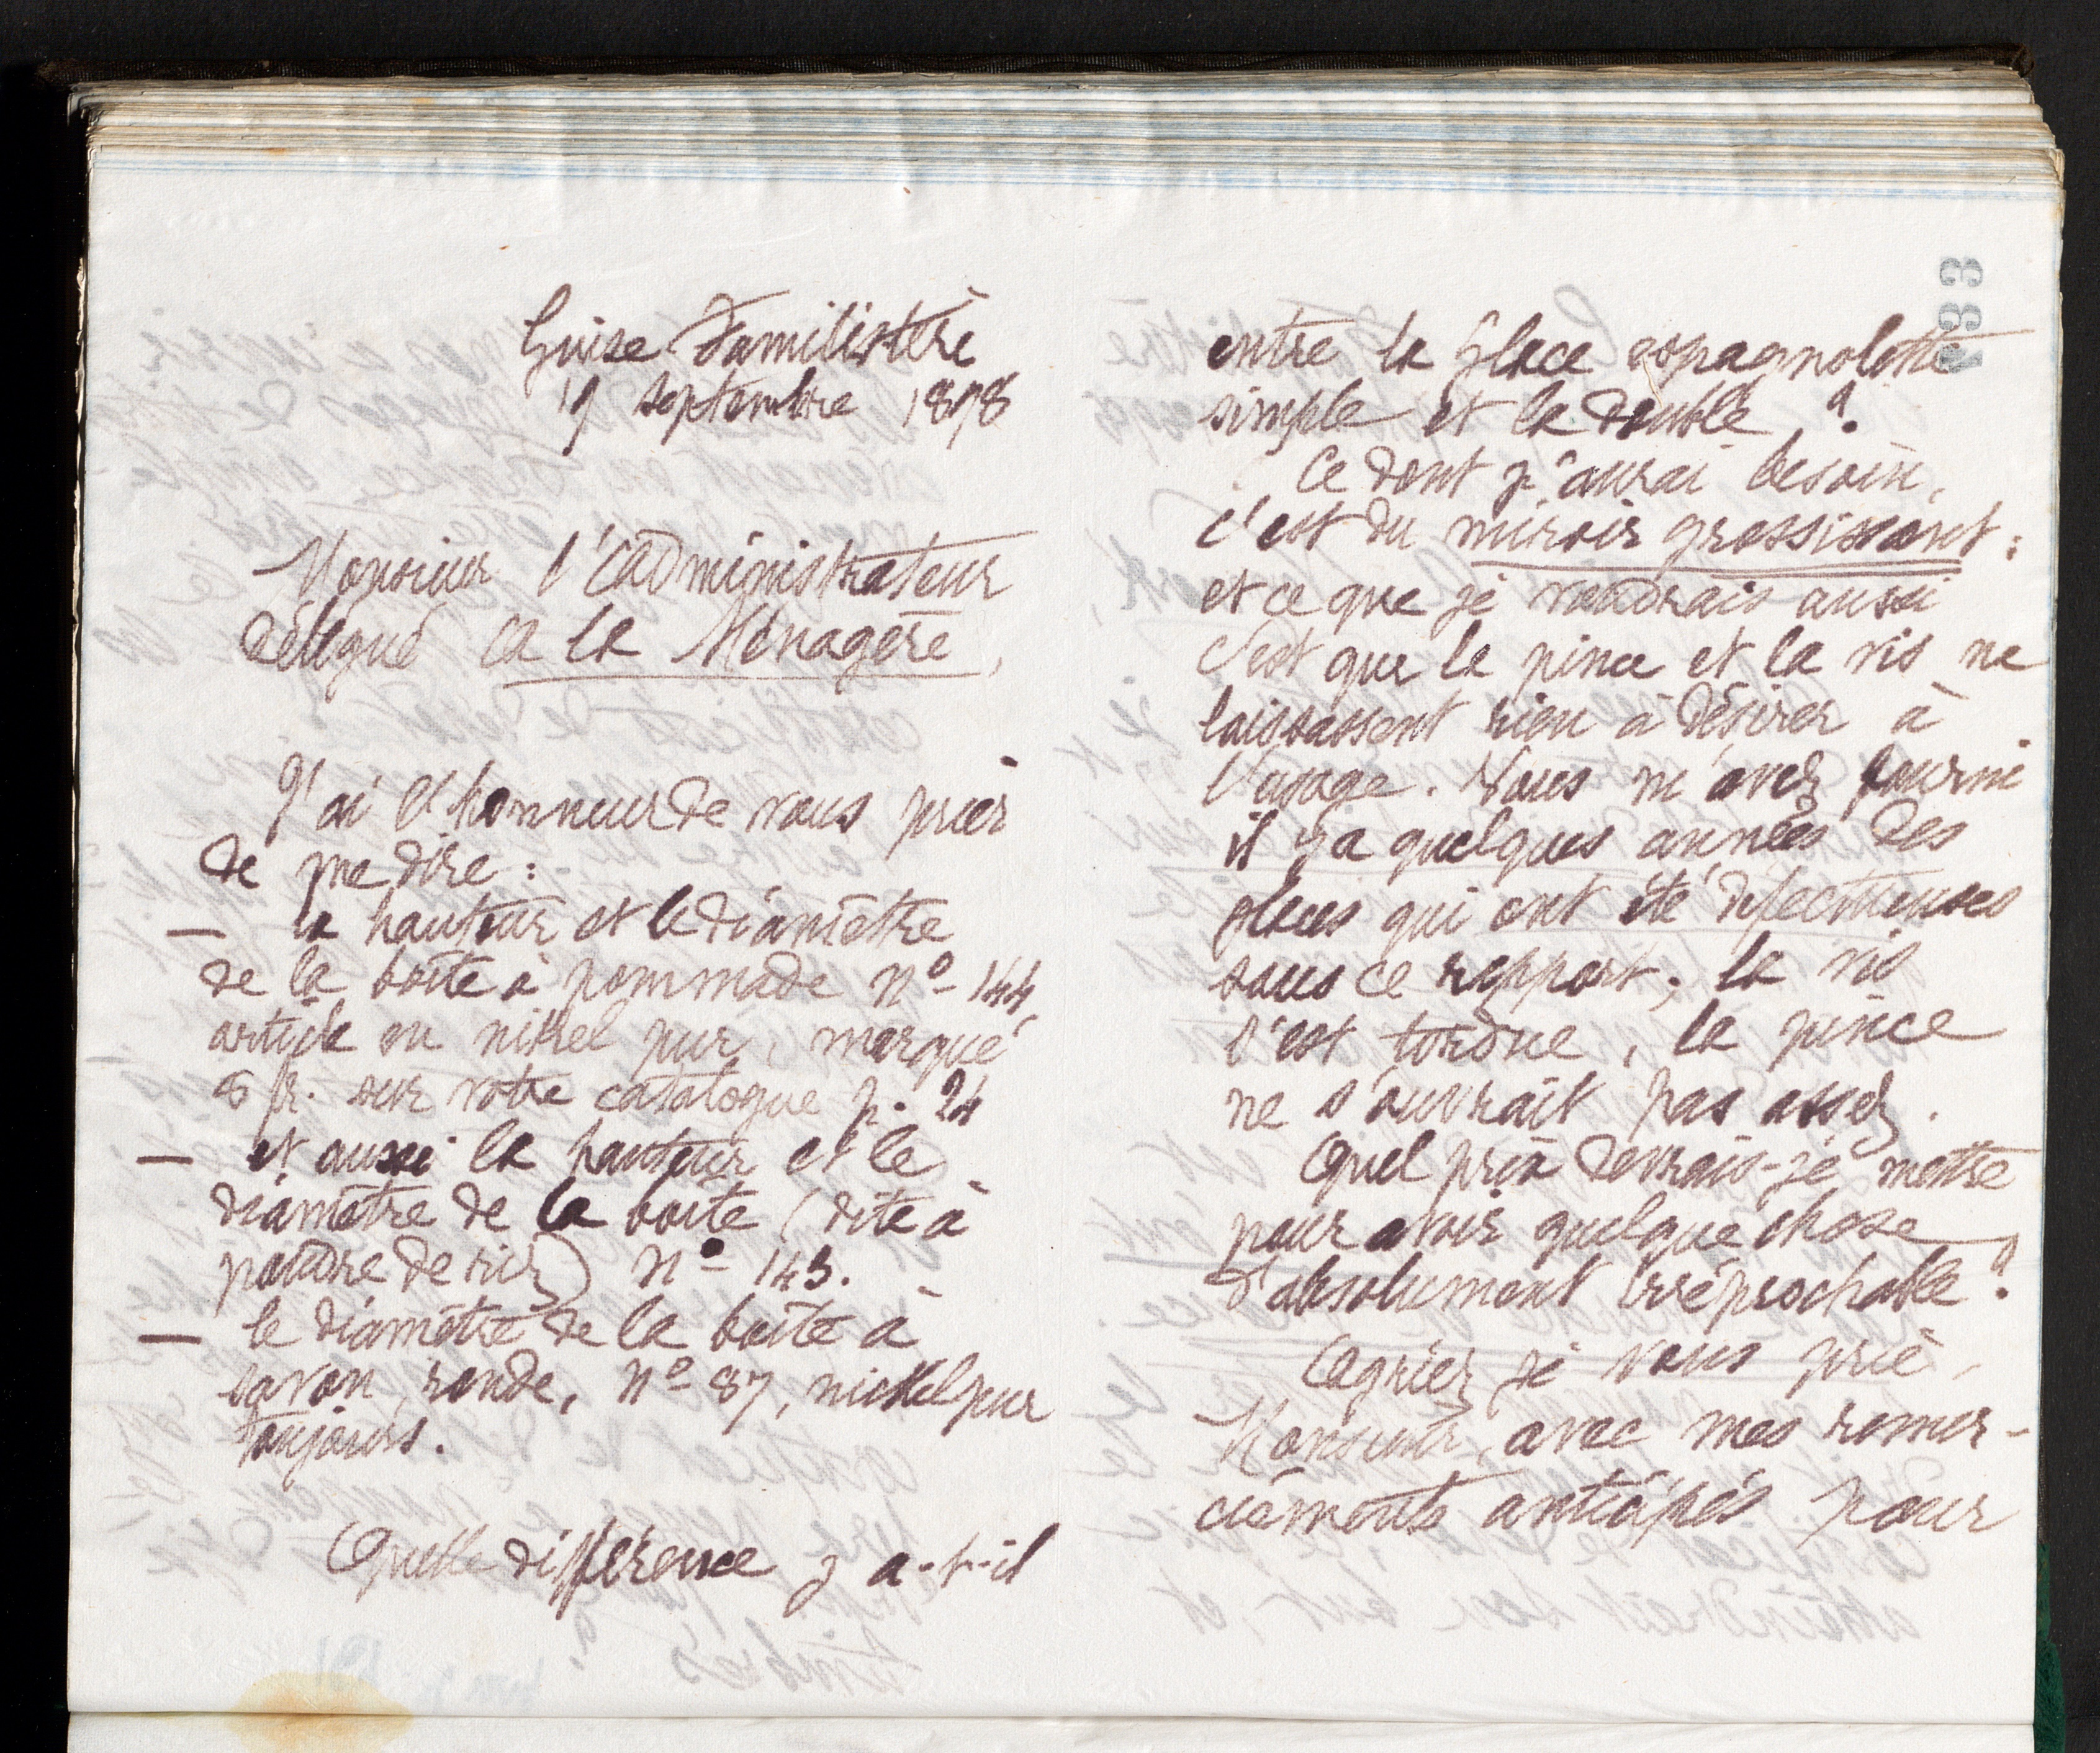 Guise Familistère
19 septembre 1898
Monsieur l'administrateur
délégué à la Ménagère,
J'ai l'honneur de vous prier
de me dire :
— la hauteur et le diamètre
de la boîte à pommade nº 144,
article en nikel pur, marqué
5 fr. sur votre catalogue p. 24
— et aussi la hauteur et le
diamètre de la boîte (dite à
poudre de riz) nº 143.
— le diamètre de la boîte à
savon, ronde, nº 87, nickel pur
toujours.
Quelle différence y a-t-il
entre la glace espagnolette
simple et la double ?
Ce dont j'aurai besoin,
c'est du miroir grossissant :
et ce que je voudrais aussi
c'est que la pince et la vis ne
laissassent rien à désirer à
l'usage. Vous m'avez fourni
il y a quelques années des
glaces qui ont été défectueuses
sous ce rapport ; la vis
s'est tordue, la pince
ne s'ouvrait pas assez.
Quel prix devrais-je mettre
pour avoir quelque chose
d'absolument irréprochable ?
Agréez je vous prie,
Monsieur, avec mes remer-
ciements anticipés pour